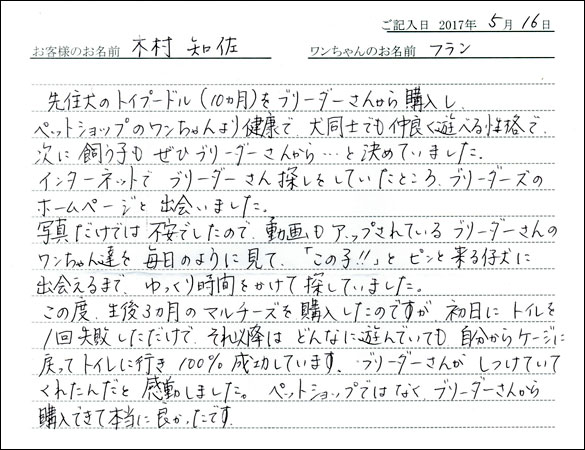 ご記入日 2017年 5月 16日
お客様のお名前 木村 知佐 ワンちゃんのお名前 フラン
先住犬のトイプードル(10ヵ月)をブリーダーさんから購入し
ペットショップのワンちゃんより健康で、犬同士でも仲良く遊べる性格で、
次に飼う子も ぜひブリーダーさんから…と決めていました。
インターネットで ブリーダーさん探しをしていたところ、ブリーダーズの
ホームページと出会いました。
写真だけでは 不安でしたので、動画も アップされている ブリーダーさんの
ワンちゃん達を 毎日のように見て、「この子!!」と ピンと来る仔犬に
出会えるまで、ゆっくり時間をかけて 探していました。
この度、生後3ヵ月の マルチーズを購入したのですが 初日に トイレを
1回失敗しただけで、それ以降は どんなに遊んでいても 自分からケージに
戻ってトイレに行き 100% 成功しています。ブリーダーさんが しつけていて
くれたんだと 感動しました。ペットショップではなく、ブリーダーさんから
購入できて本当に良かったです。